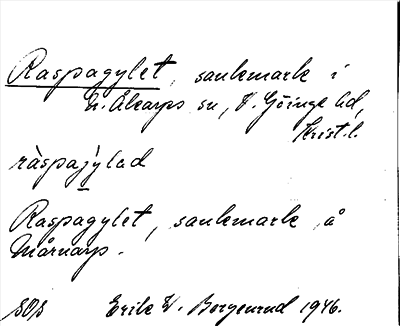 Raspagylet, sankmark i
N. Åkarps sn, V. Göinge hd,
Krist.l.
ràspajylad
Raspagylet, sankmark å
Mårnarp.
SOS Erik W. Borgenrud 1946.